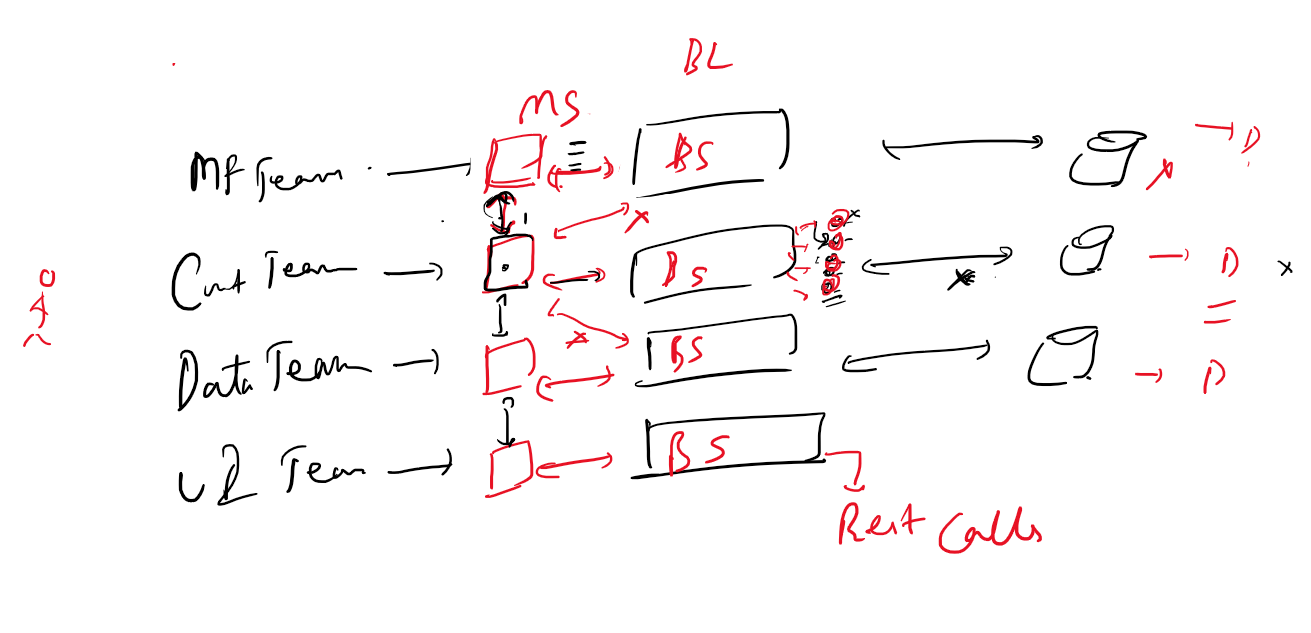 BL
MS
MF Team BS D
Cnt Team BS D
Data Team BS D
UI Team BS
Rest Calls